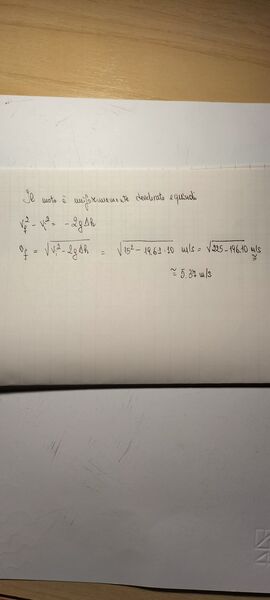 Il moto è uniformemente decelerato e quindi
v_f² - v_i² = -2gΔh
v_f = √(v_i² - 2gΔh) = √(15² - 19,61·10) m/s = √(225 - 196,10) m/s ≅
≅ 5.37 m/s